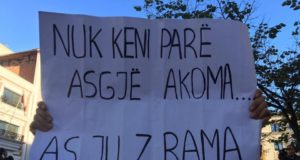 NUK KENI PARË
ASGJË AKOMA...
AS JU Z. RAMA